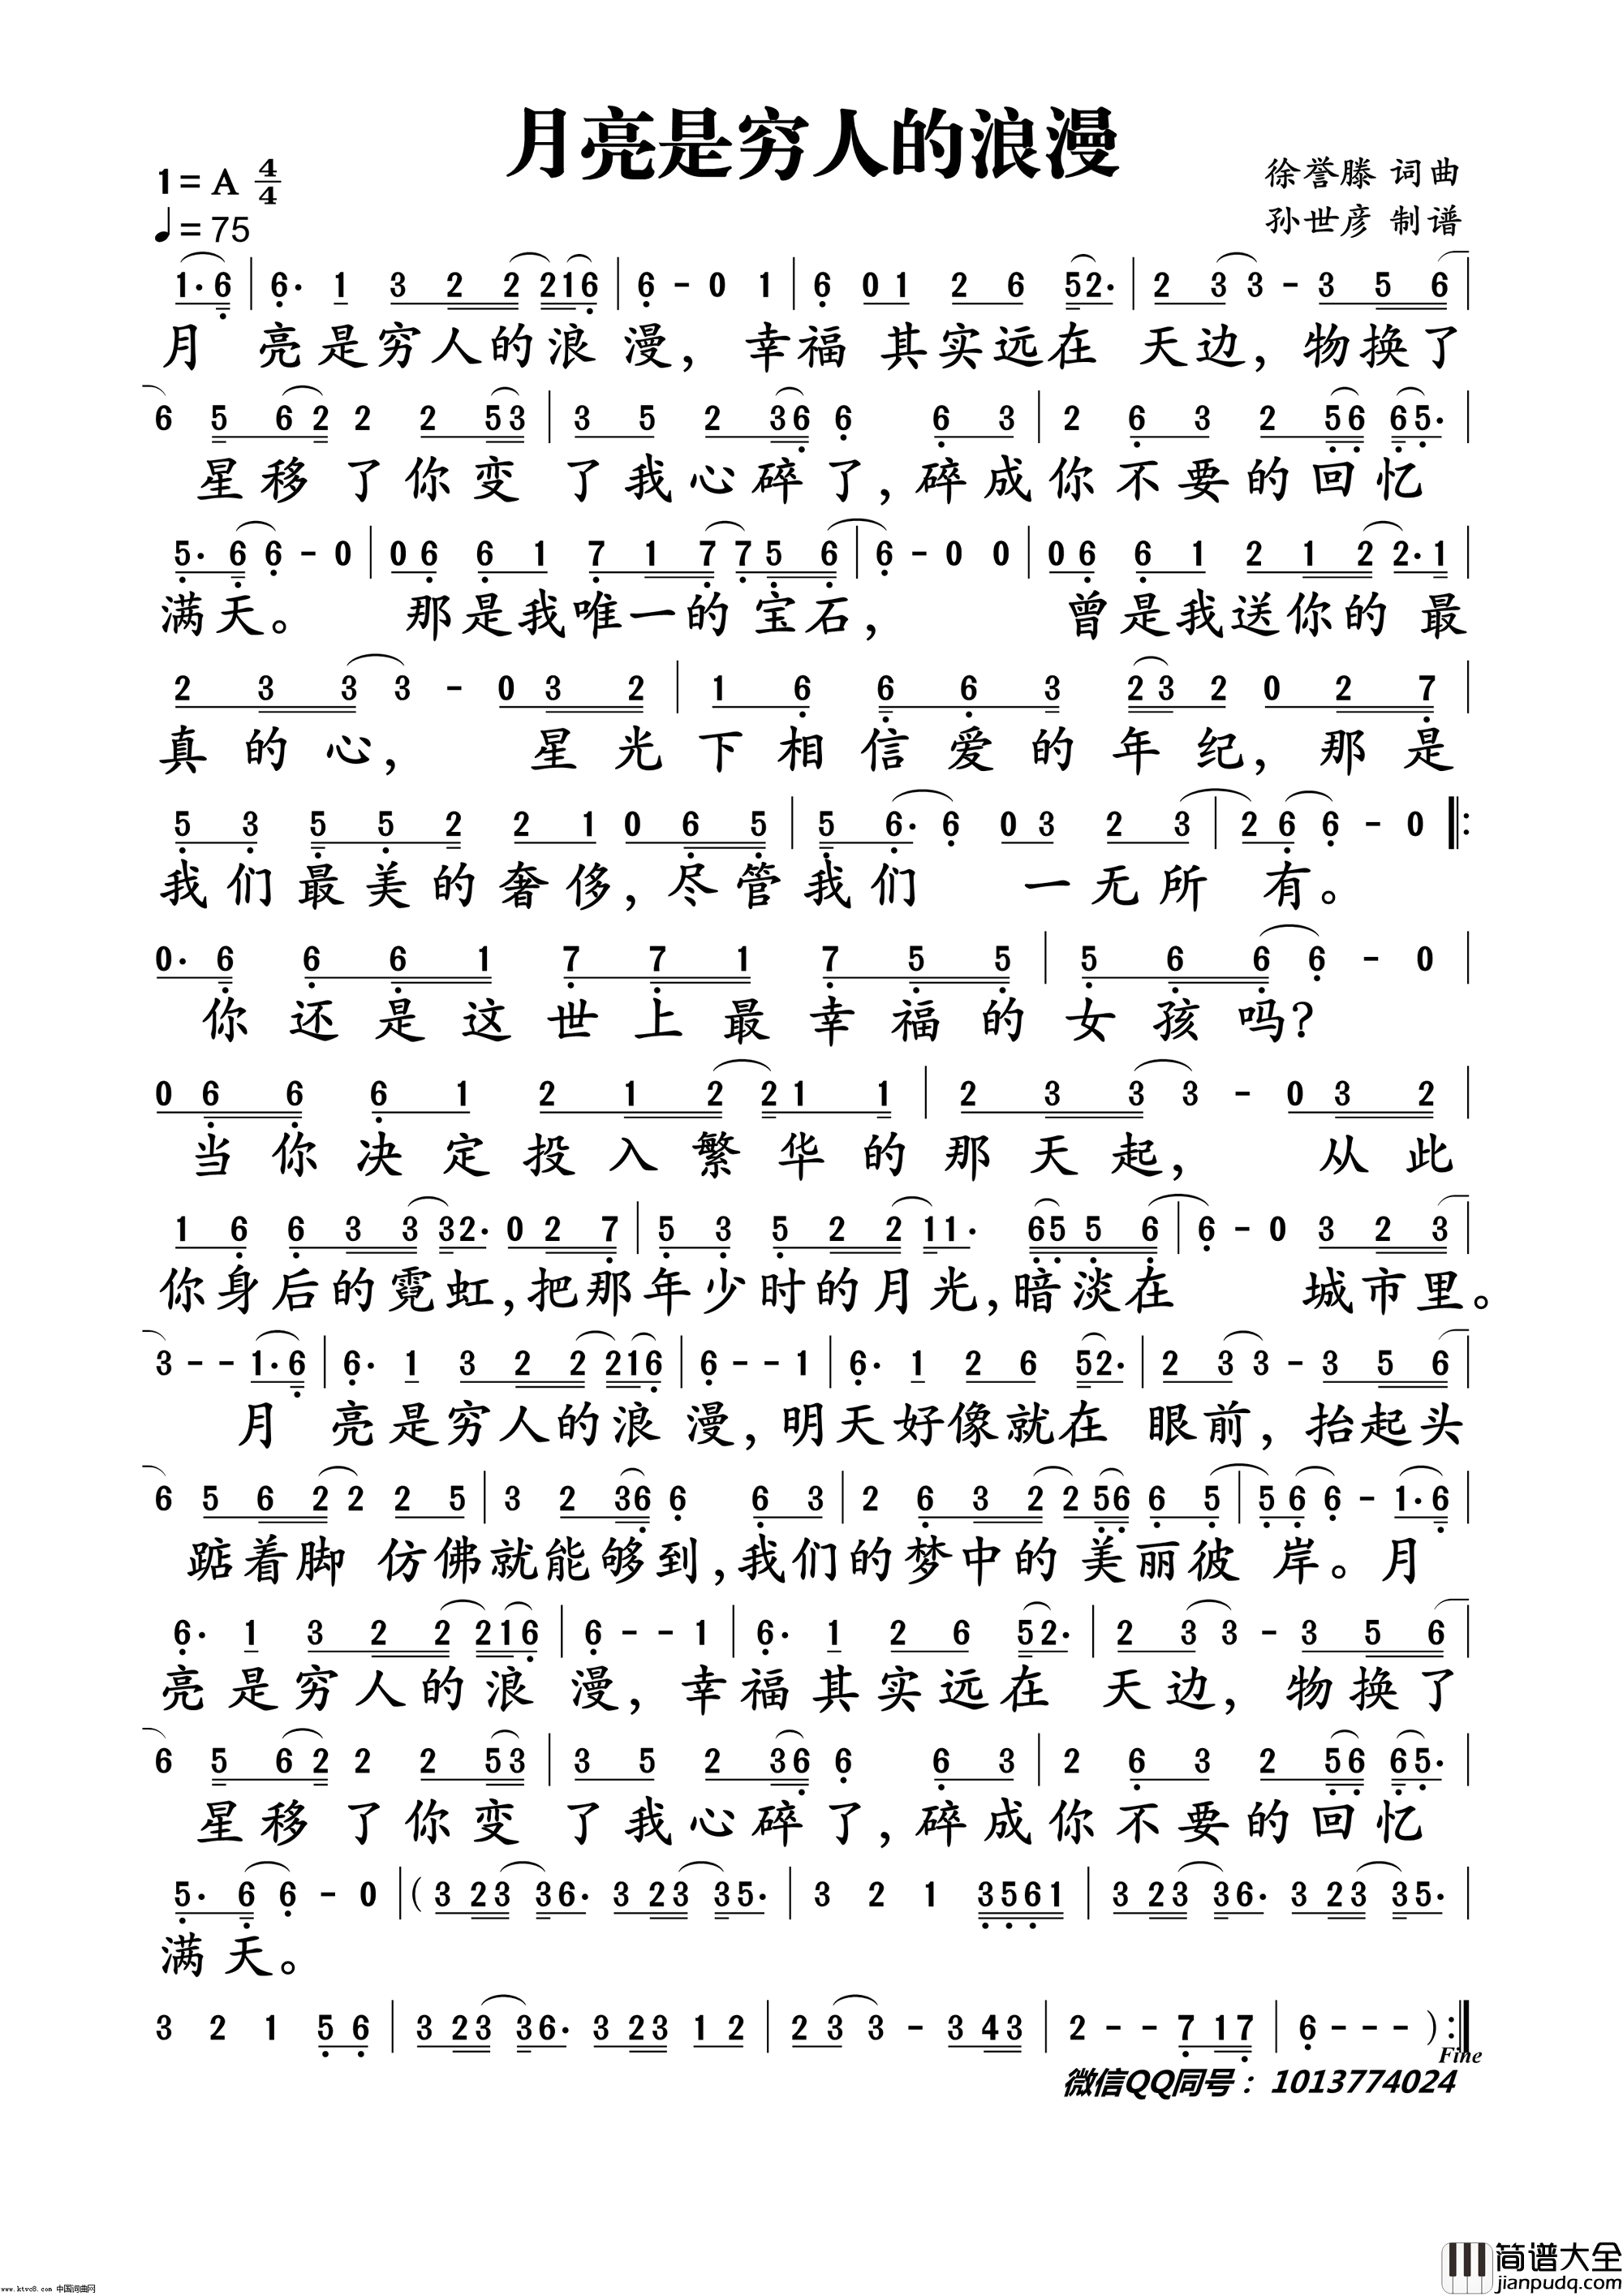 月亮是穷人的浪漫
1=A 4/4
徐誉滕 词曲
♩=75
孙世彦 制谱
1·6 | 6· 1 3 2 2 216 | 6 - 0 1 | 6 01 2 6 52· | 2 3 3 - 3 5 6 |
月 亮是穷人的浪漫，幸福其实远在 天边，物换了
6 5 6 2 2 2 53 | 3 5 2 36 6 6 3 | 2 6 3 2 56 65· |
星移了你变了我心碎了，碎成你不要的回忆
5· 6 6 - 0 | 06 6 1 7 1 7 75 6 | 6 - 0 0 | 06 6 1 2 1 2 2·1 |
满天。 那是我唯一的宝石， 曾是我送你的最
2 3 3 3 - 0 3 2 | 1 6 6 6 3 23 2 0 2 7 |
真的心， 星光下相信爱的年纪，那是
5 3 5 5 2 2 1 0 6 5 | 5 6· 6 03 2 3 | 26 6 - 0 ‖:
我们最美的奢侈，尽管我们 一无所有。
0· 6 6 6 1 7 7 1 7 5 5 | 5 6 6 6 - 0 |
你还是这世上最幸福的女孩吗?
0 6 6 6 1 2 1 2 21 1 | 2 3 3 3 - 0 3 2 |
当你决定投入繁华的那天起， 从此
1 6 6 3 3 32· 0 2 7 | 5 3 5 2 2 11· 65 5 6 | 6 - 0 3 2 3 |
你身后的霓虹,把那年少时的月光,暗淡在 城市里。
3 - - 1·6 | 6· 1 3 2 2 216 | 6 - - 1 | 6· 1 2 6 52· | 2 3 3 - 3 5 6 |
月 亮是穷人的浪漫，明天好像就在 眼前，抬起头
6 5 6 2 2 2 5 | 3 2 36 6 6 3 | 2 6 3 2 2 56 6 5 | 5 6 6 - 1·6 |
踮着脚 仿佛就能够到,我们的梦中的美丽彼岸。月
6· 1 3 2 2 216 | 6 - - 1 | 6· 1 2 6 52· | 2 3 3 - 3 5 6 |
亮是穷人的浪漫，幸福其实远在 天边，物换了
6 5 6 2 2 2 53 | 3 5 2 36 6 6 3 | 2 6 3 2 56 65· |
星移了你变了我心碎了，碎成你不要的回忆
5· 6 6 - 0 | (3 23 36· 3 23 35· | 3 2 1 3561 | 3 23 36· 3 23 35· |
满天。
3 2 1 5 6 | 3 23 36· 3 23 1 2 | 2 3 3 - 3 43 | 2 - - 7 17 | 6 - - - ) :‖
Fine
微信QQ同号：1013774024
简谱大全
jianpudq.com
www.ktvc8.com 中国词曲网